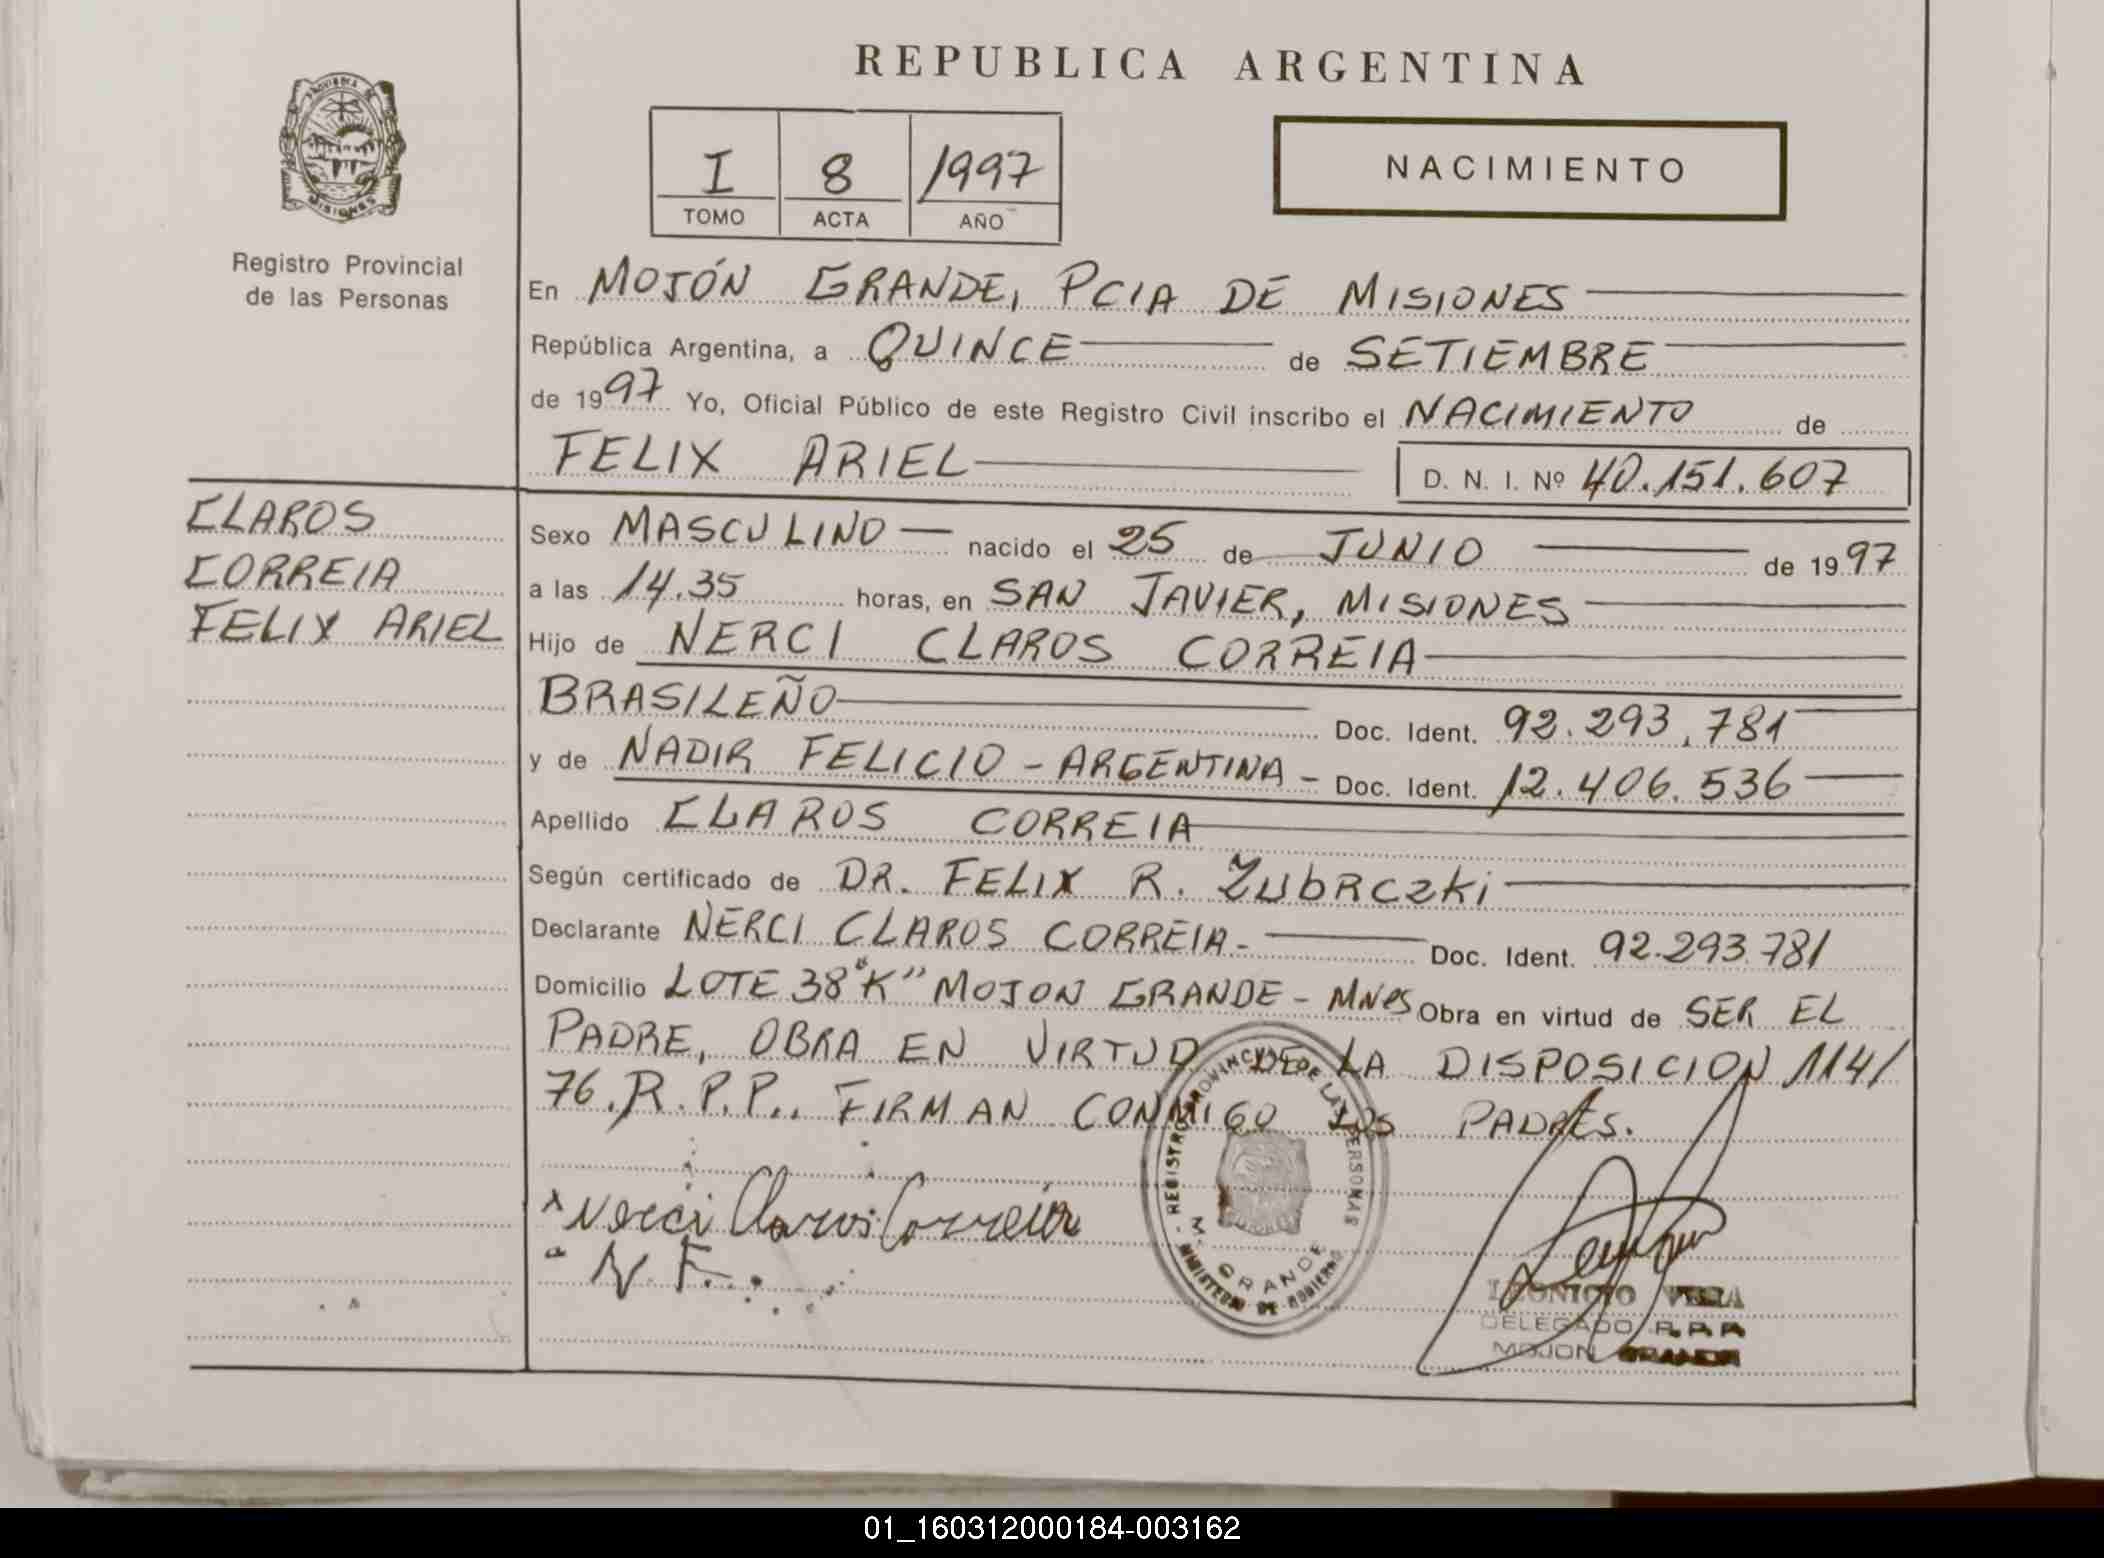 REPUBLICA ARGENTINA
PROVINCIA DE
MISIONES
Registro Provincial
de las Personas
I 8 1997
TOMO ACTA AÑO
NACIMIENTO
En MOJÓN GRANDE, PCIA DE MISIONES
República Argentina, a QUINCE de SETIEMBRE
de 1997 Yo, Oficial Público de este Registro Civil inscribo el NACIMIENTO de
FELIX ARIEL D. N. I. Nº 40.151.607
CLAROS
CORREIA
FELIX ARIEL
Sexo MASCULINO nacido el 25 de JUNIO de 1997
a las 14.35 horas, en SAN JAVIER, MISIONES
Hijo de NERCI CLAROS CORREIA
BRASILEÑO Doc. Ident. 92.293.781
y de NADIR FELICIO - ARGENTINA - Doc. Ident. 12.406.536
Apellido CLAROS CORREIA
Según certificado de DR. FELIX R. ZUbRCzki
Declarante NERCI CLAROS CORREIA.- Doc. Ident. 92.293.781
Domicilio LOTE 38 "K" MOJON GRANDE - MNES Obra en virtud de SER EL
PADRE, OBRA EN VIRTUD DE LA DISPOSICION 114/
76.R.P.P.. FIRMAN CONMIGO LOS PADRES.
x Nerci Claros Correia
N. F.
REGISTRO PROVINCIAL DE LAS PERSONAS
M. GRANDE
MINISTERIO DE GOBIERNO
LEONICIO VERA
DELEGADO R.P.P.
MOJON GRANDE
01_160312000184-003162